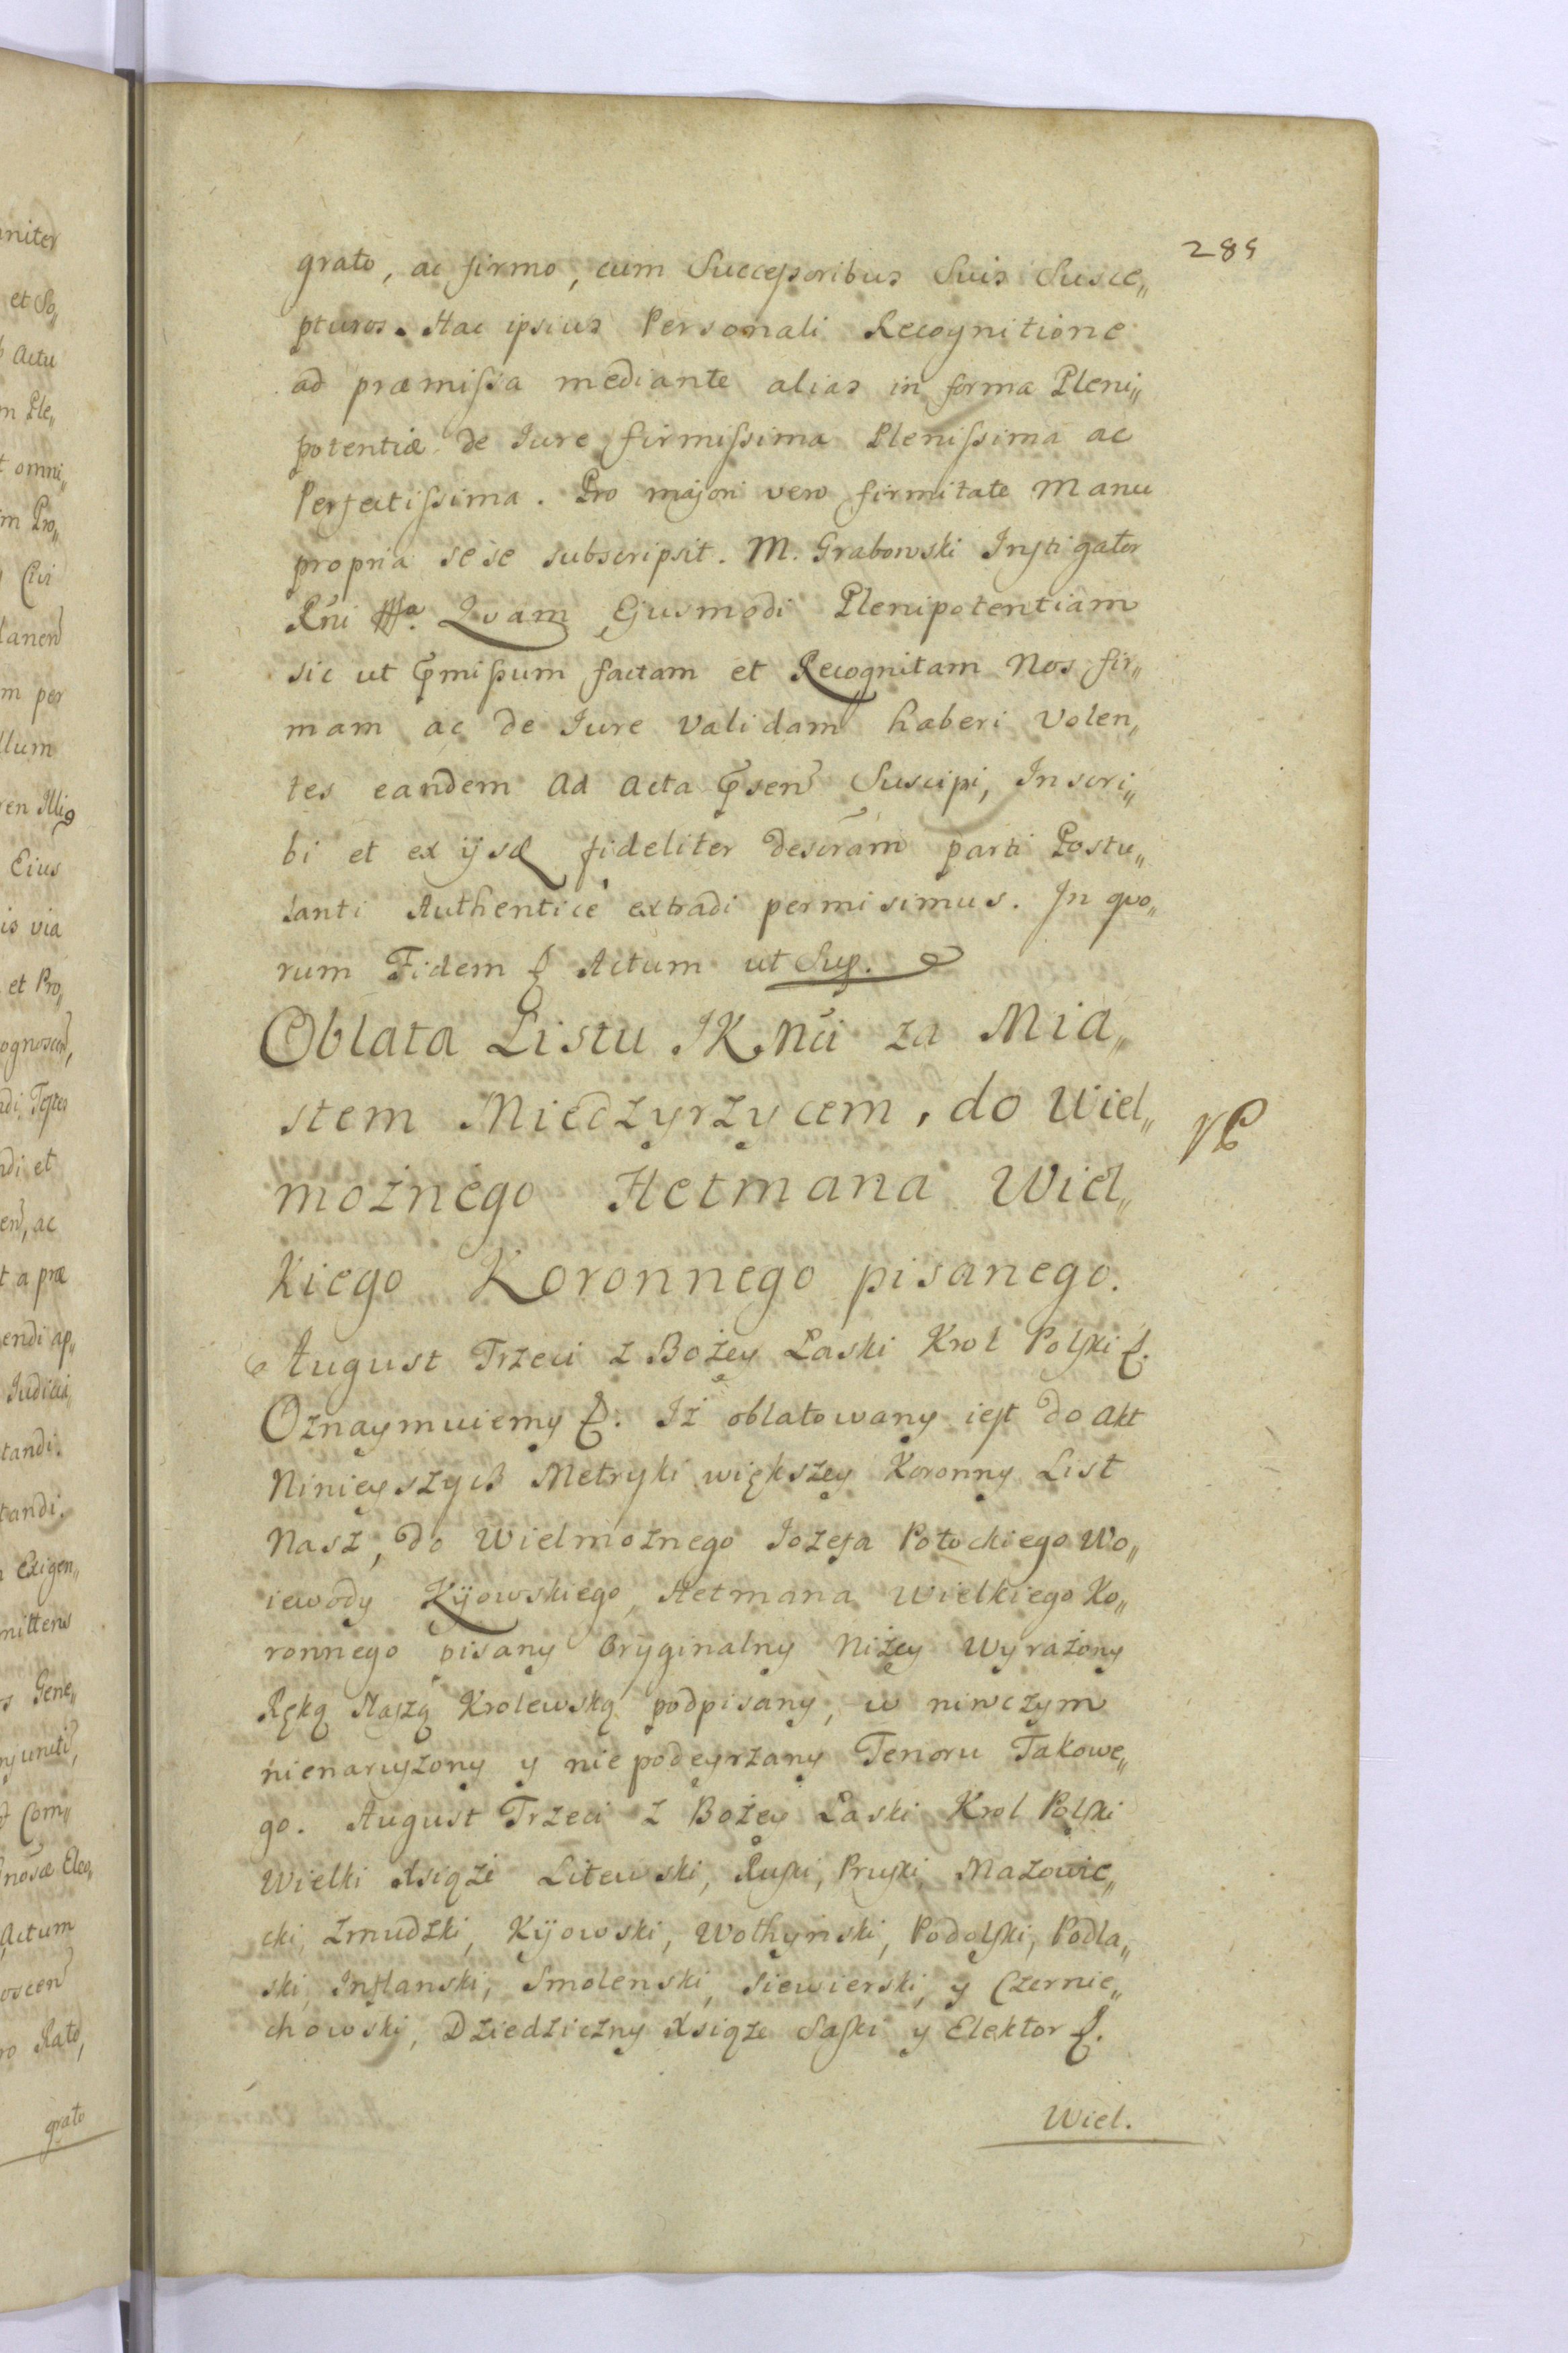 285
grato, ac firmo, cum Successoribus Suis Susce„
pturos. Hac ipsius Personali Recognitione
ad præmissa mediante alias in forma Pleni„
potentiæ de Iure firmissima Plenissima ac
Perfectissima. Pro majori vero firmitate Manu
propria sese subscripsit. M. Grabowski Instigator
Rñi Quam Ejusmodi Plenipotentiam
sic ut pmissum factam et Recognitam Nos fir„
mam ac de Iure Validam haberi Volen„
tes eandem Ad Acta psen Suscipi, Inscri„
bi et ex ijsd fideliter descrām parti Postu„
lanti Authenticè extradi permisimus. In quo„
rum Fidem & Actum ut Sup.
Oblata Listu JKMci za Mia„
stem Miedzyrzycem, do Wiel„
możnego Hetmana Wiel„
kiego Koronnego pisanego.
August Trzeci z Bożey Łaski Krol Polski &.
Oznaymuiemy &. Iż oblatowany iest do Akt
Ninieyszych Metryki większey Koronny List
Nasz, do Wielmożnego Iozefa Potockiego Wo„
iewody Kijowskiego, Hetmana Wielkiego Ko„
ronnego pisany Oryginalny Niżey Wyrażony
Ręką Naszą Krolewską podpisany, w niwczym
nienaruszony y niepodeyrzany Tenoru Takowe„
go. August Trzeci z Bożey Łaski Krol Polski
Wielki Xsiąże Litewski, Ruski, Pruski, Mazowie„
cki, Zmudzki, Kijowski, Wołhyński, Podolski, Podla„
ski, Inflanski, Smolenski, Siewierski, y Czernie„
chowski, Dziedziczny Xsiąże Saski y Elektor &.
Wiel.